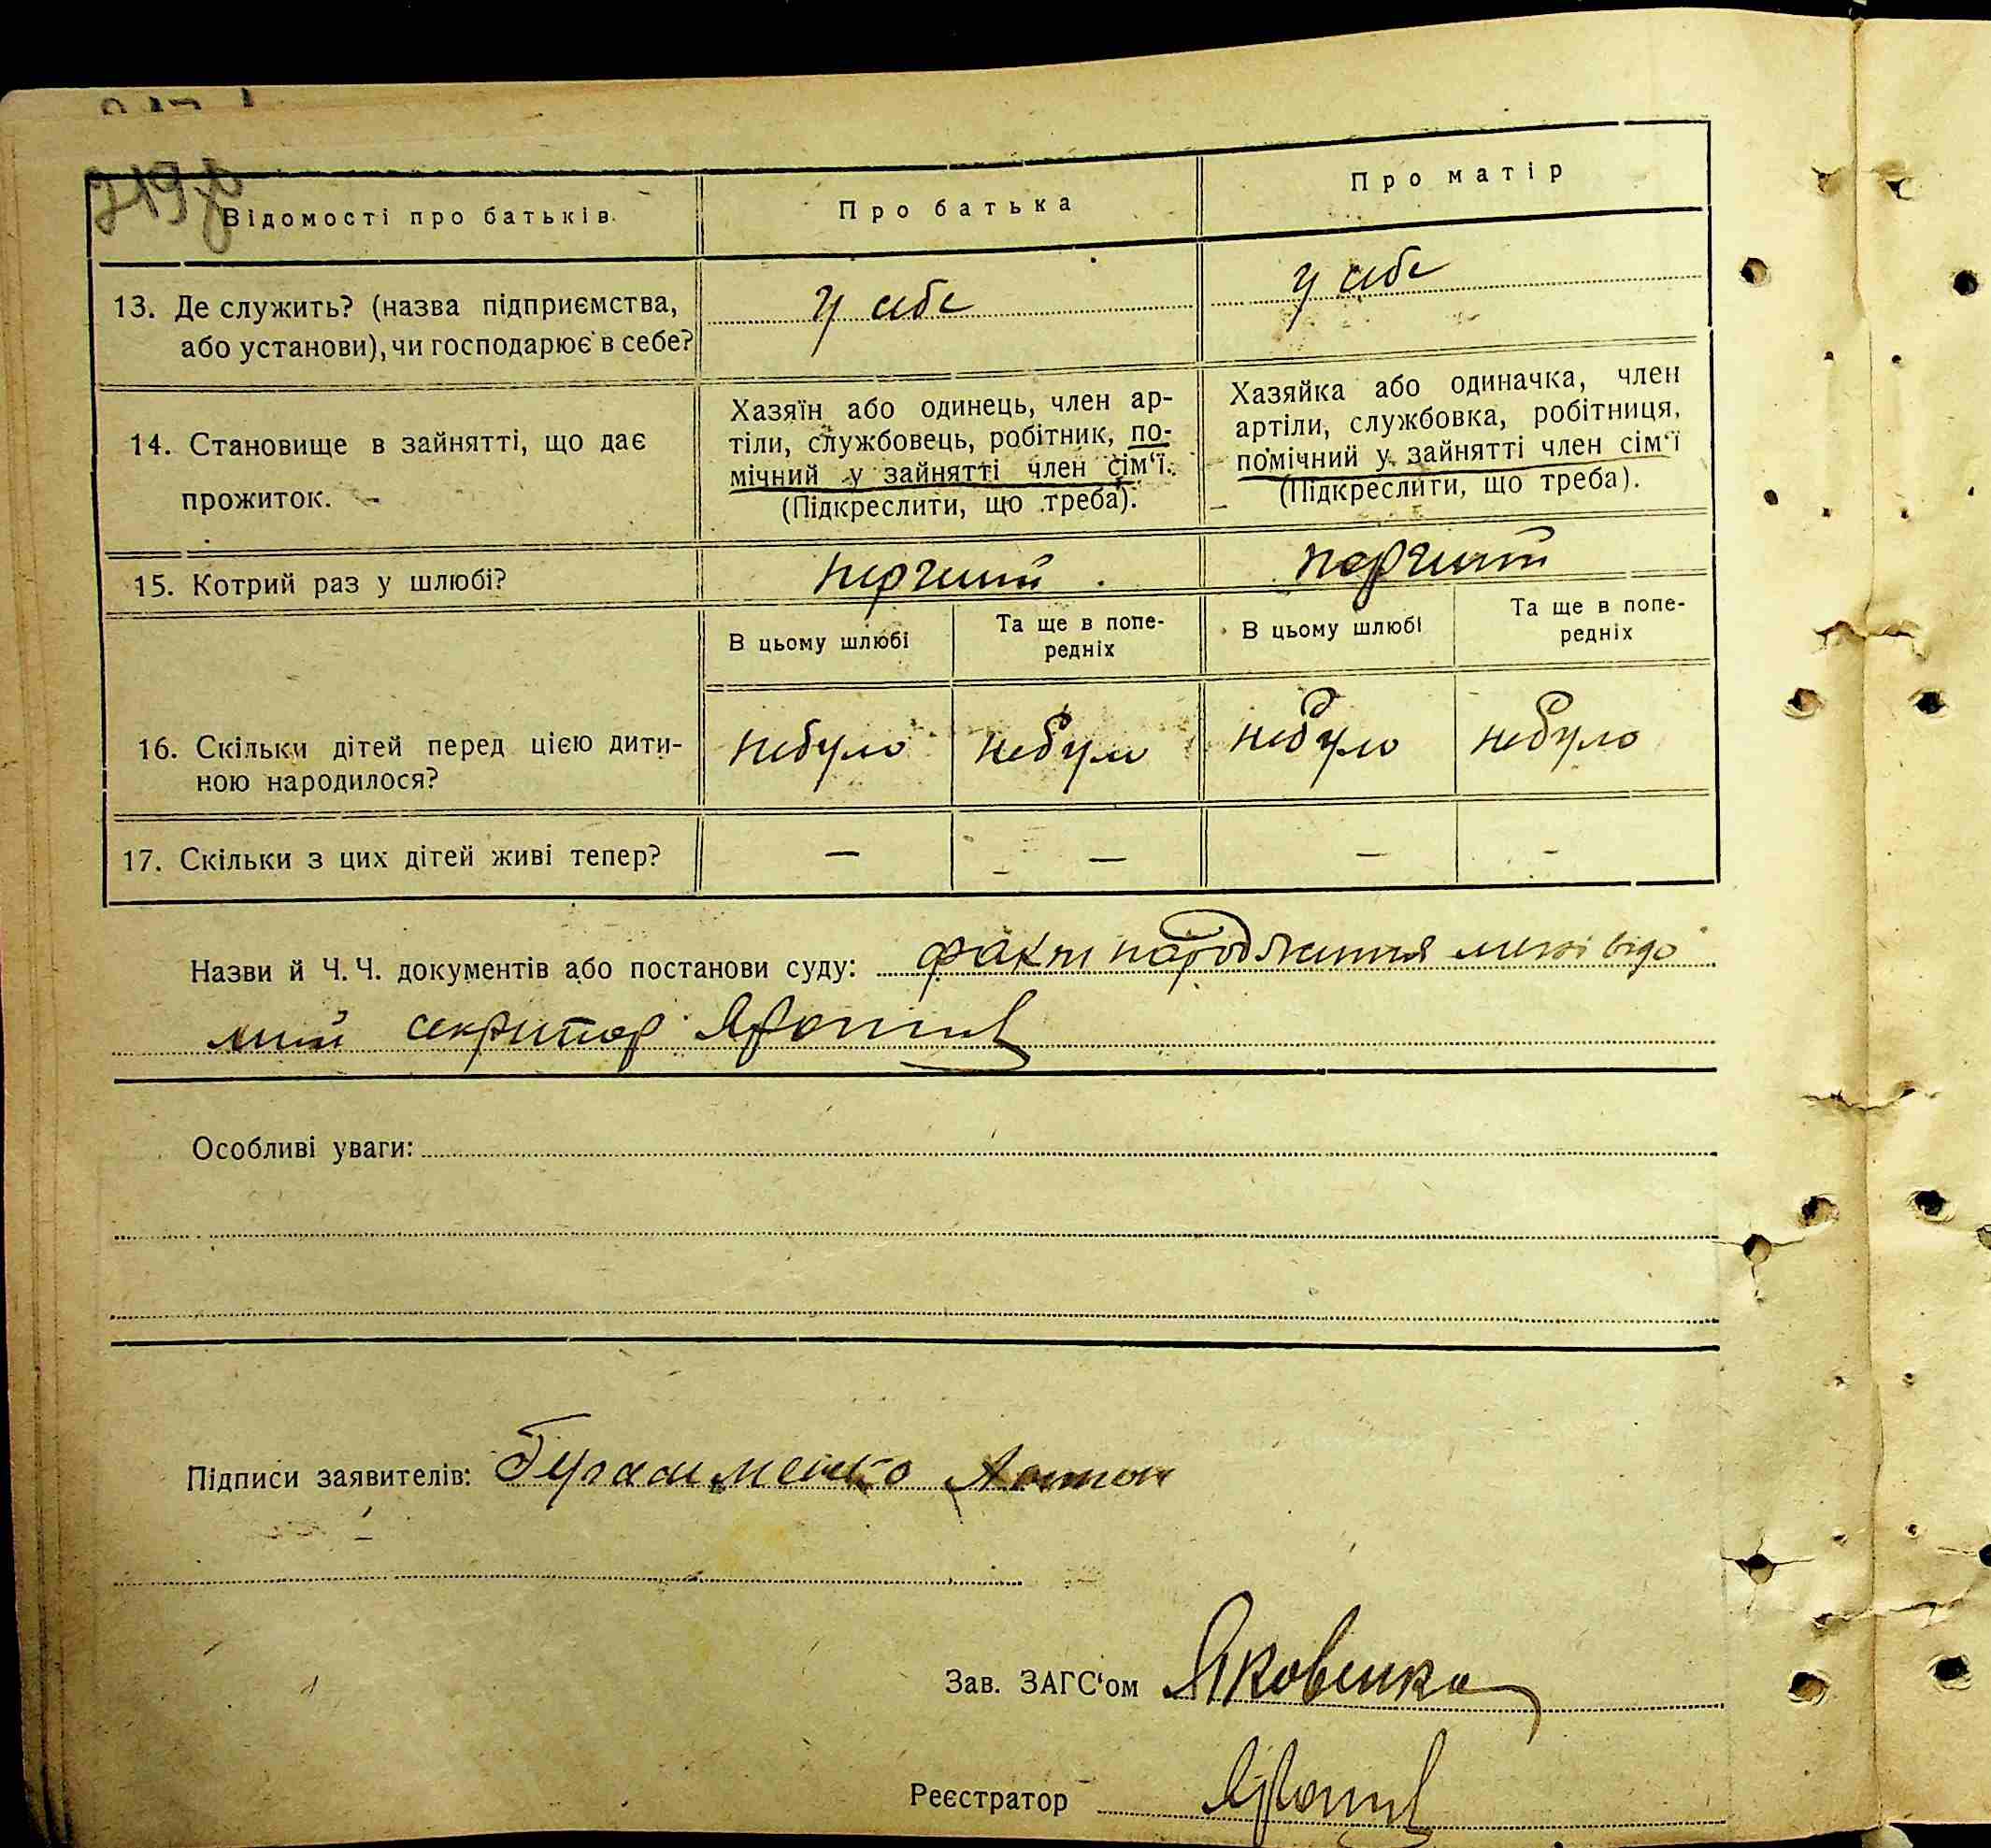 Відомості про батьків
Про батька
Про матір
13. Де служить? (назва підприємства,
або установи), чи господарює в себе?
у себе
у себе
14. Становище в зайнятті, що дає
прожиток.
Хазяїн або одинець, член ар-
тіли, службовець, робітник, по-
мічний у зайнятті член сім‘ї.
(Підкреслити, що треба).
Хазяйка або одиначка, член
артіли, службовка, робітниця,
помічний у зайнятті член сім‘ї
(Підкреслити, що треба).
15. Котрий раз у шлюбі?
перший
перший
В цьому шлюбі
Та ще в попе-
редніх
В цьому шлюбі
Та ще в попе-
редніх
16. Скільки дітей перед цією дити-
ною народилося?
небуло
небуло
небуло
небуло
17. Скільки з цих дітей живі тепер?
—
—
—
-
Назви й Ч. Ч. документів або постанови суду: факт народження мені відо
мий секритар
Особливі уваги:
Підписи заявителів: Герасименко Антон
Зав. ЗАГС‘ом Яковенко
Реєстратор